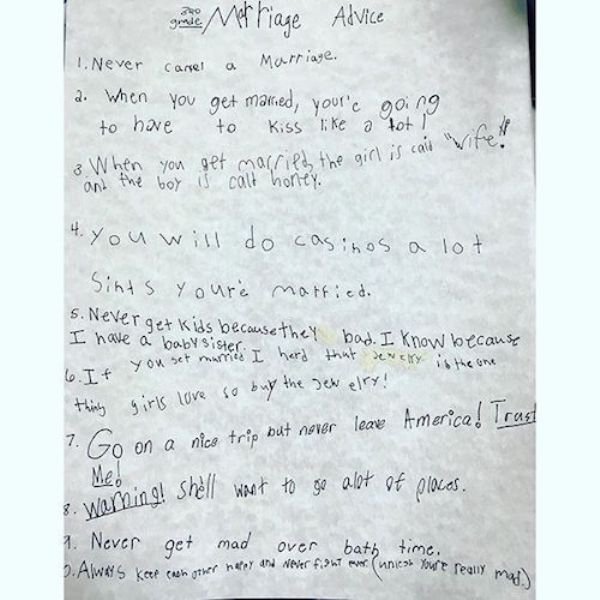 3RD grade Marriage Advice
1. Never cancel a Marriage.
2. When you get married, your'e going
to have to kiss like a lot!
3. When you get married, the girl is calld "wife!"
and the boy is calt honey.
4. You will do casinos a lot
Sints youre married.
5. Never get kids because they bad. I know because
I have a baby sister.
6. If you get married I herd that jewelry is the one
thing girls love so buy the jewelry!
7. Go on a nice trip but never leave America! Trust
Me!
8. Warning! Shell want to go alot of places.
9. Never get mad over bath time.
0. Always keep each other happy and Never fight ever. (unless You're really mad.)